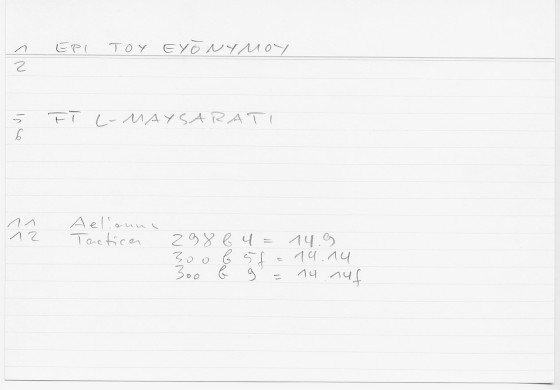 1 EPI TOY EYŌNYMOY
2
5 FĪ L-MAYSARATI
6
11 Aelianus
12 Tactica 298 b 4 = 14.9
300 b 5f = 14.14
300 b 9 = 14 14f